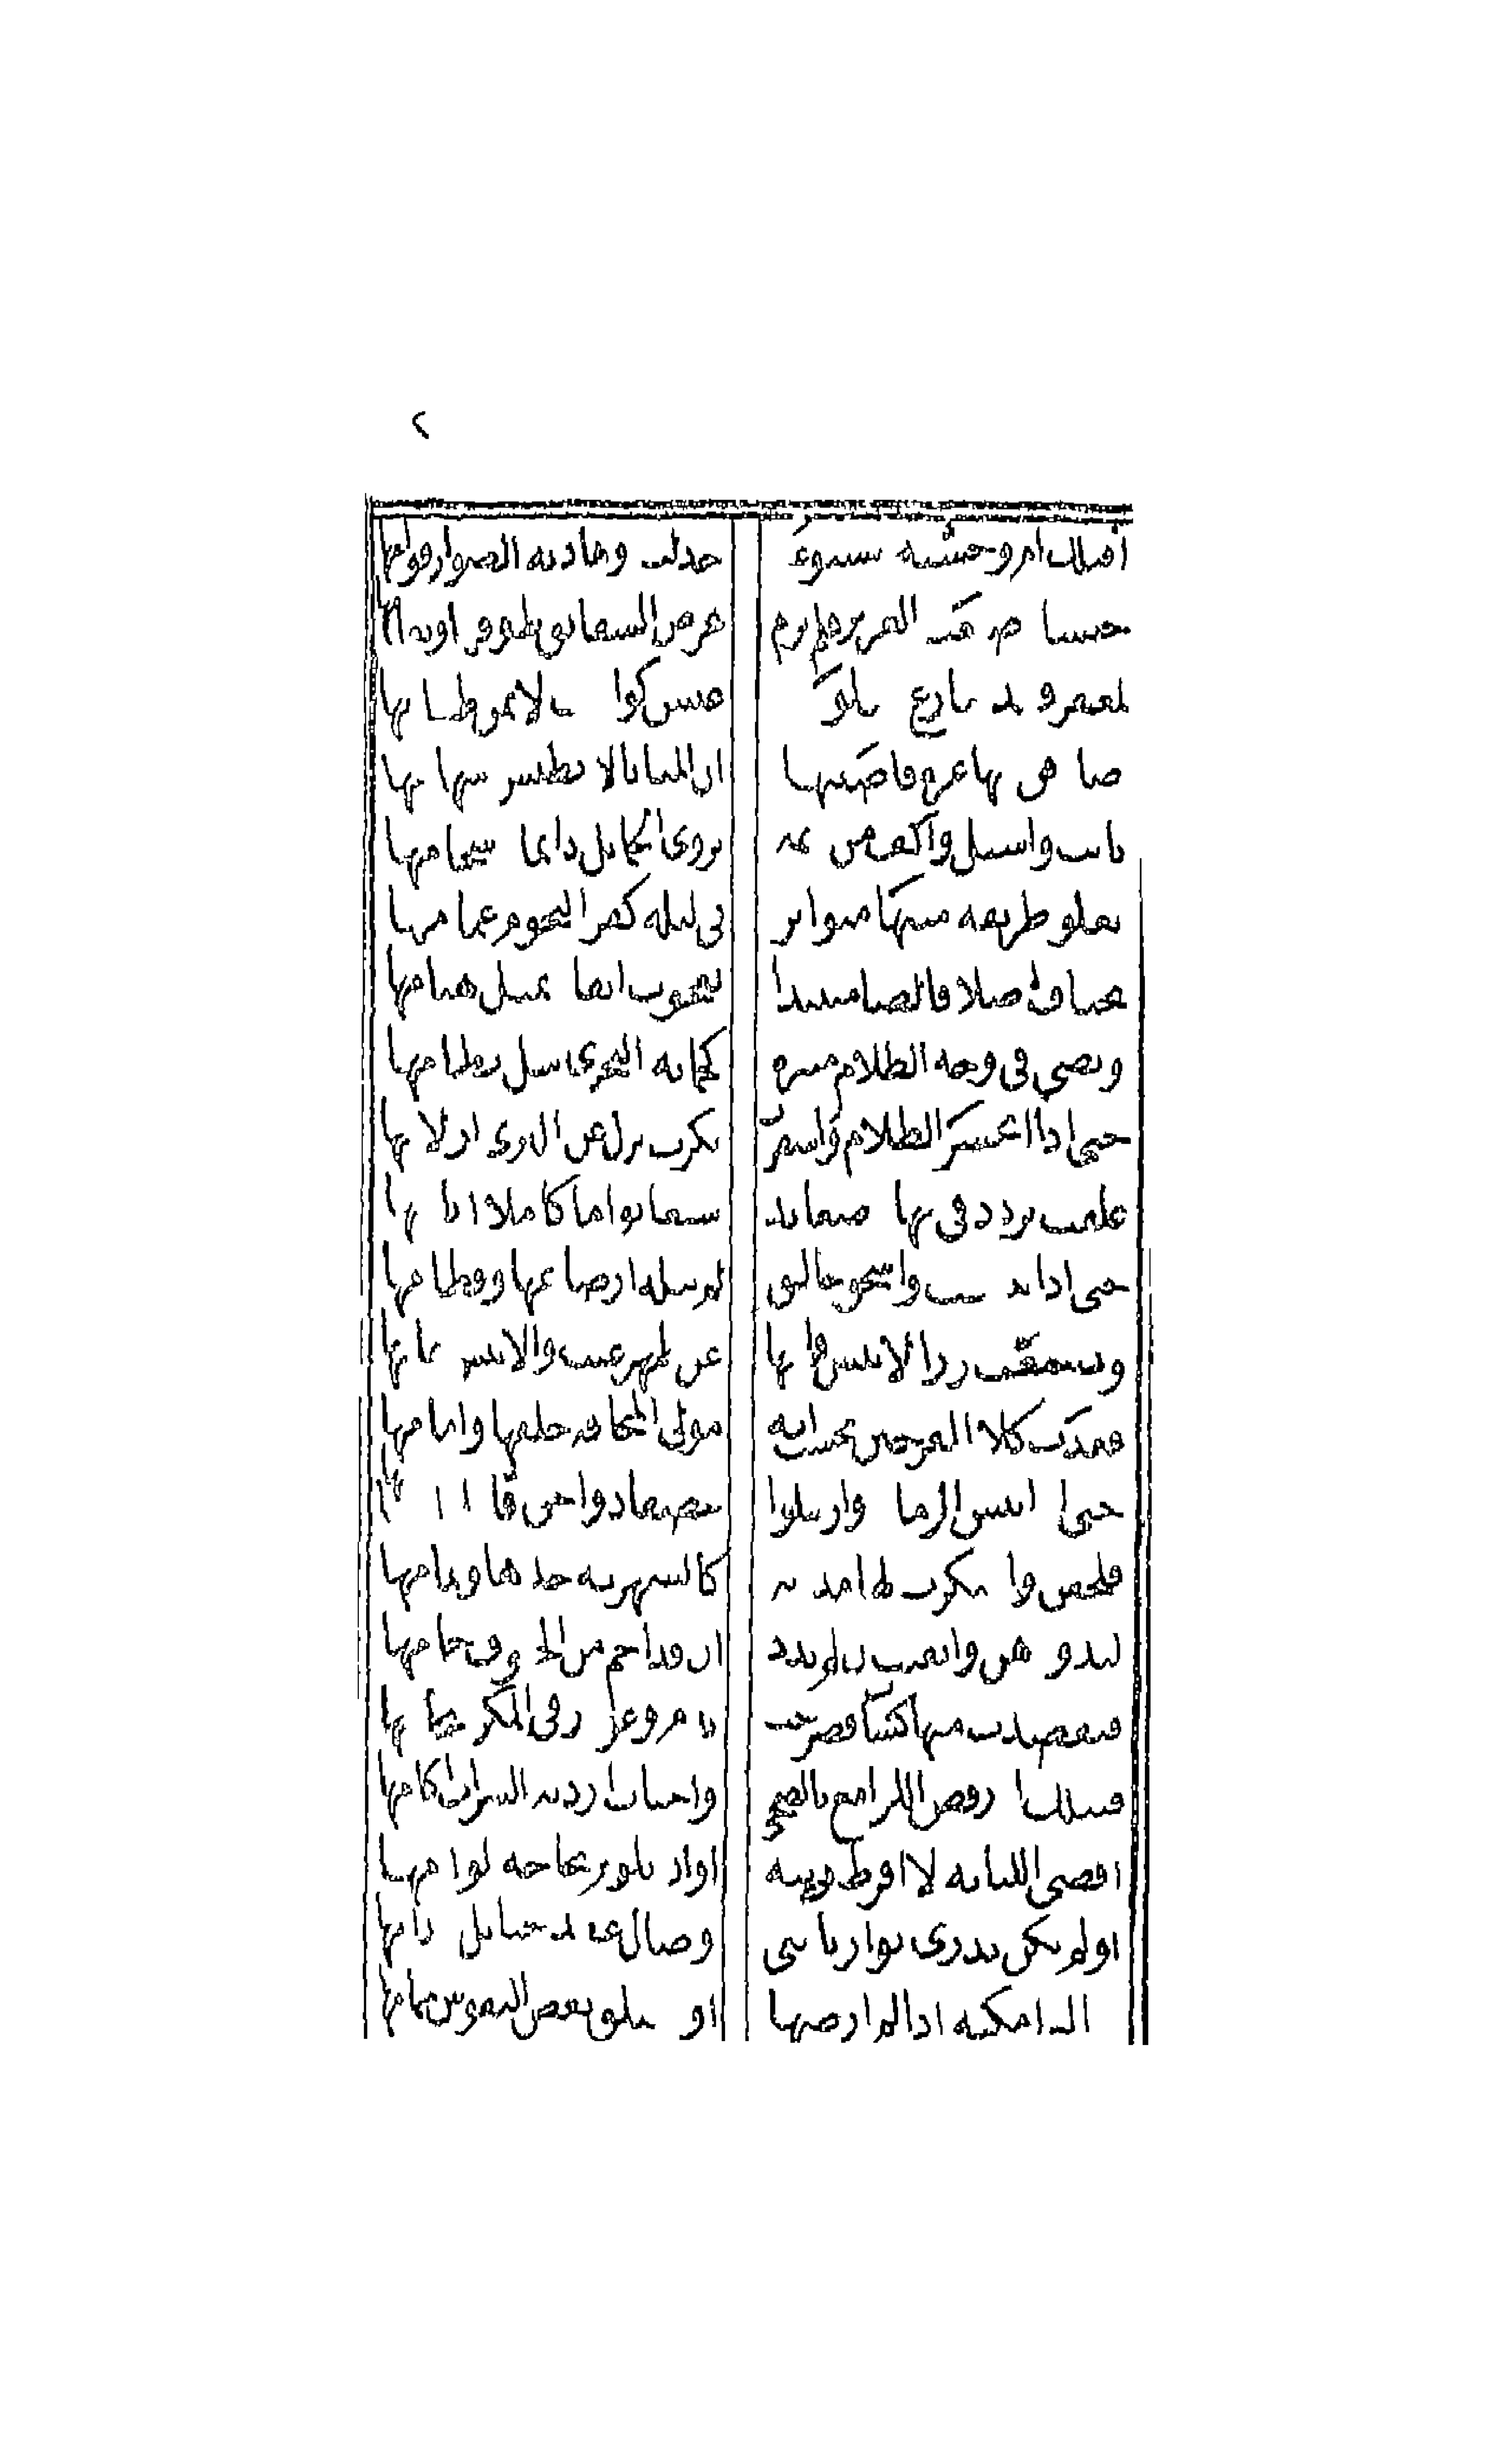 ٢
افتلك ام وحشية مسبوعة خذلت وهادية الصوار قوامها
خنساء ضيعت الفرير فلم يرم عرض الشقائق طوفها وبغامها
لمعفر قهد تنازع شلوه غبس كواسب لا يمن طعامها
صادفن منها غرة فاصبنها ان المنايا لا تطيش سهامها
باتت واسبل واكف من ديمة يروي الخمائل دائما تسجامها
يعلو طريقة متنها متواتر في ليلة كفر النجوم غمامها
تجتاف اصلا قالصا متنبذا بعجوب انقاء يميل هيامها
وتضيء في وجه الظلام منيرة كجمانة البحري سل نظامها
حتى اذا انحسر الظلام واسفرت بكرت تزل عن الثرى ازلامها
علهت تردد في نهاء صعائد سبعا تواما كاملا ايامها
حتى اذا يئست واسحق حالق لم يبله ارضاعها وفطامها
وتسمعت رز الانيس فراعها عن ظهر غيب والانيس سقامها
فغدت كلا الفرجين تحسب انه مولى المخافة خلفها وامامها
حتى اذا يئس الرماة وارسلوا غضفا دواجن قافلا اعصامها
فلحقن واعتكرت لها مدرية كالسمهرية حدها وتمامها
لتذودهن وايقنت ان لم تذد ان قد احم من الحتوف حمامها
فتقصدت منها كساب فضرجت بدم وغودر في المكر سخامها
فبتلك اذ رقص اللوامع بالضحى واجتاب اردية السراب اكامها
اقضي اللبانة لا افرط ريبة او ان يلوم بحاجة لوامها
او لم تكن تدري نوار بانني وصال عقد حبائل جذامها
تراك امكنة اذا لم ارضها او يعتلق بعض النفوس حمامها